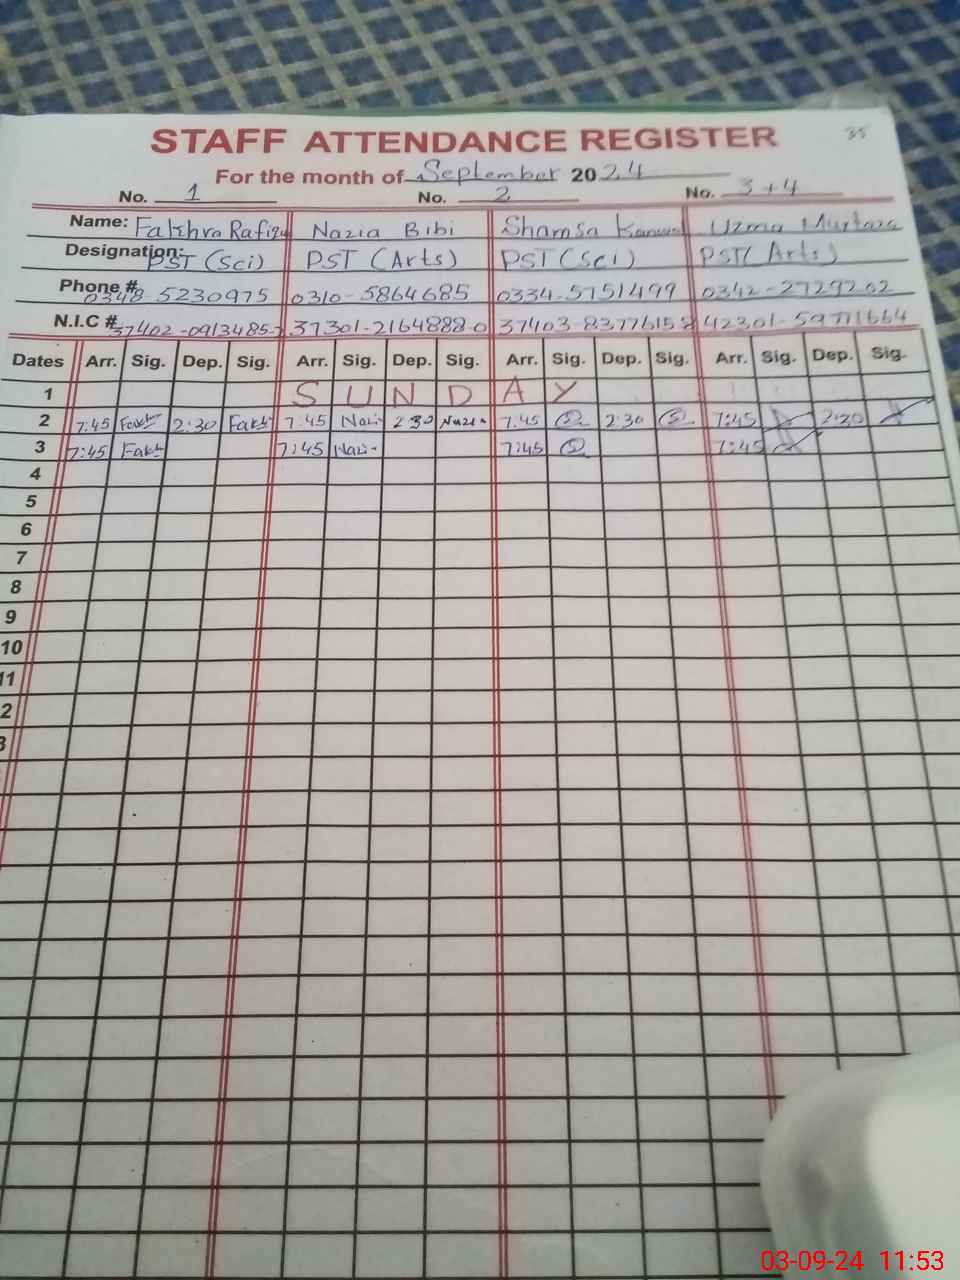 35
STAFF ATTENDANCE REGISTER
For the month of September 2024
No. 1 No. 2 No. 3+4
Name: Fakhra Rafiqu Nazia Bibi Shamsa Kanwal Uzma Murtaza
Designation: PST (Sci) PST (Arts) PST (Sci) PST (Arts)
Phone # 0348-5230975 0310-5864685 0334-5751499 0342-2729202
N.I.C # 37402-0913485-2 37301-2164888-0 37403-8377615-8 42301-59711664
Dates Arr. Sig. Dep. Sig. Arr. Sig. Dep. Sig. Arr. Sig. Dep. Sig. Arr. Sig. Dep. Sig.
1 SUNDAY
2 7:45 Fakh 2:30 Fakh 7:45 Nazi 2:30 Nazi 7:45 2:30 7:45 2:30
3 7:45 Fakh 7:45 Nazi 7:45 7:45
4
5
6
7
8
9
10
11
2
3
03-09-24 11:53